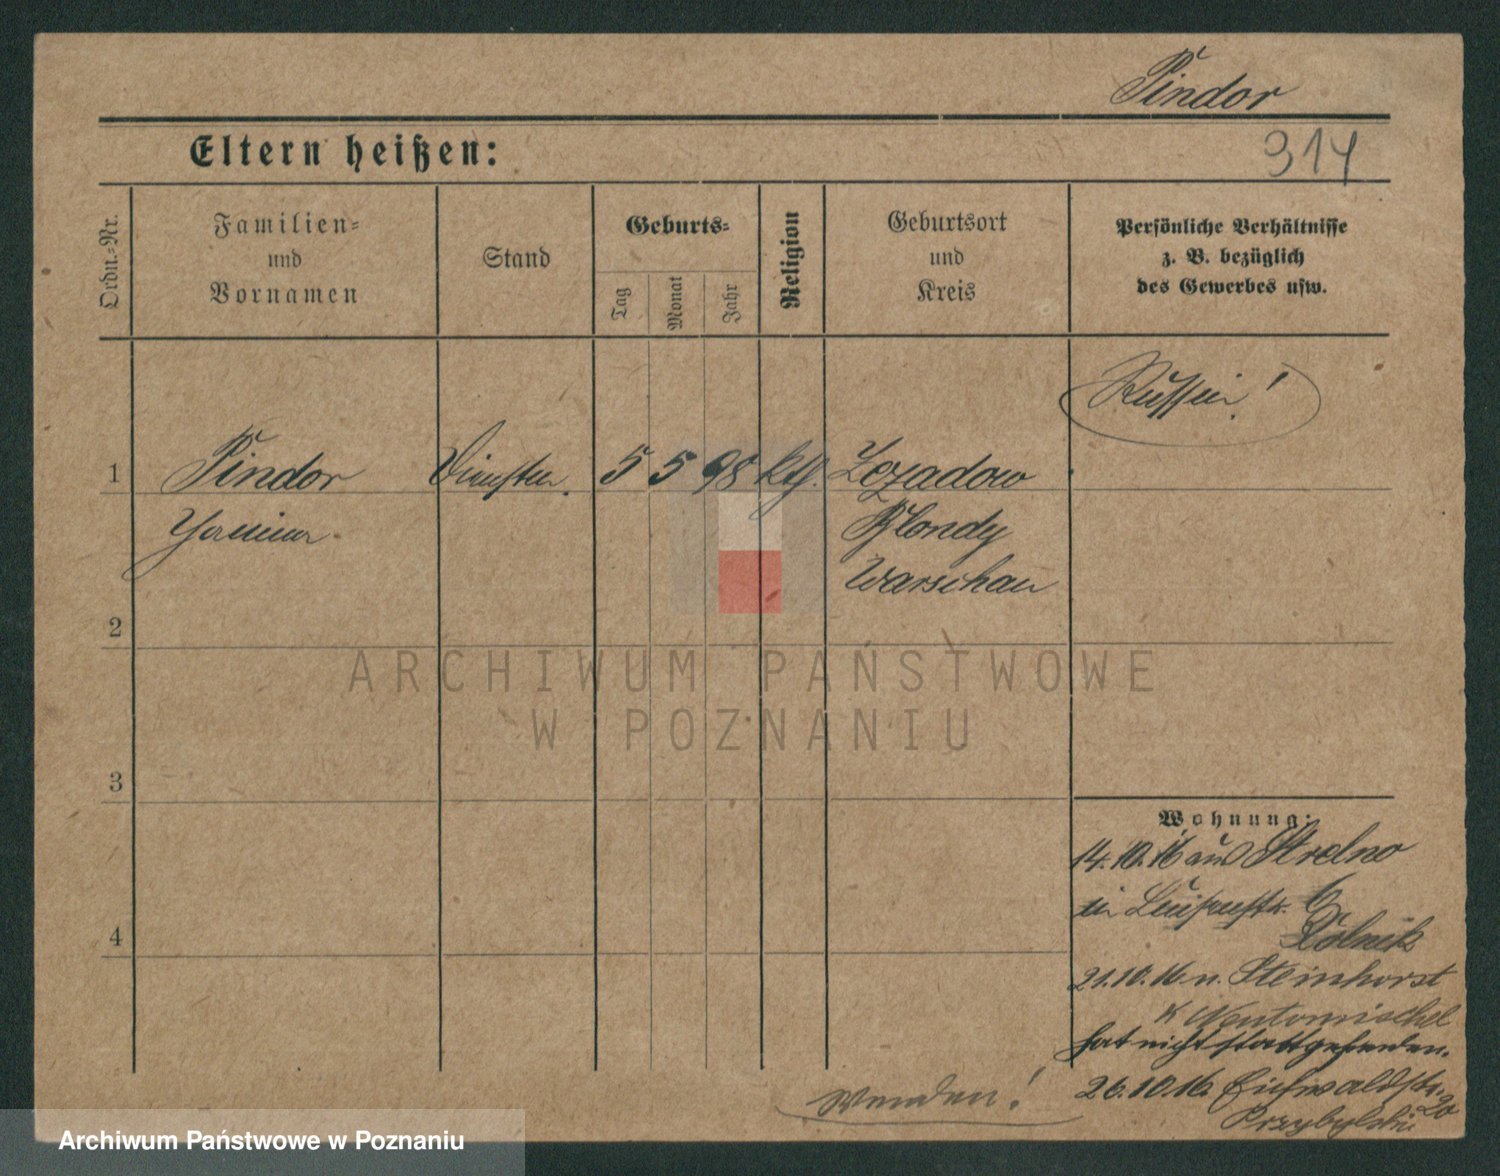 Pindor
314
Eltern heißen:
Ordn.-Nr.
Familien-
und
Vornamen
Stand
Geburts-
Tag
Monat
Jahr
Religion
Geburtsort
und
Kreis
Persönliche Verhältnisse
z. B. bezüglich
des Gewerbes usw.
Russin!
1 Pindor 5 5 98 kth.
Blondy
Warschau
2
3
4
ARCHIWUM PAŃSTWOWE
W POZNANIU
Wohnung:
14.10.16 aus Strelno
in Luisenstr. 6
21.10.16 n. Steinhorst
K Neutomischel
hat nicht stattgefunden.
26.10.16. Eichwaldstr. 20
Przybylski
Wenden!
Archiwum Państwowe w Poznaniu